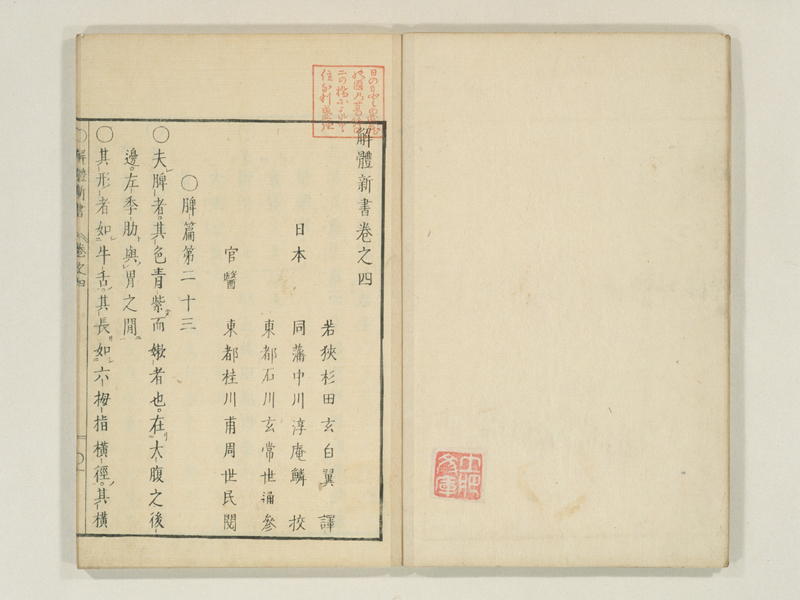 解體新書卷之四
若狹杉田玄白翼 譯
日本 同藩中川淳庵鱗 校
東都石川玄常世通參
官醫 東都桂川甫周世民閱
〇脾篇第二十三
〇夫脾者。其色青紫而嫩者也。在大腹之後
邊。左季肋與胃之間。
〇其形者如牛舌。其長如六拇指橫徑。其橫
解體新書 卷之四
土肥
文庫